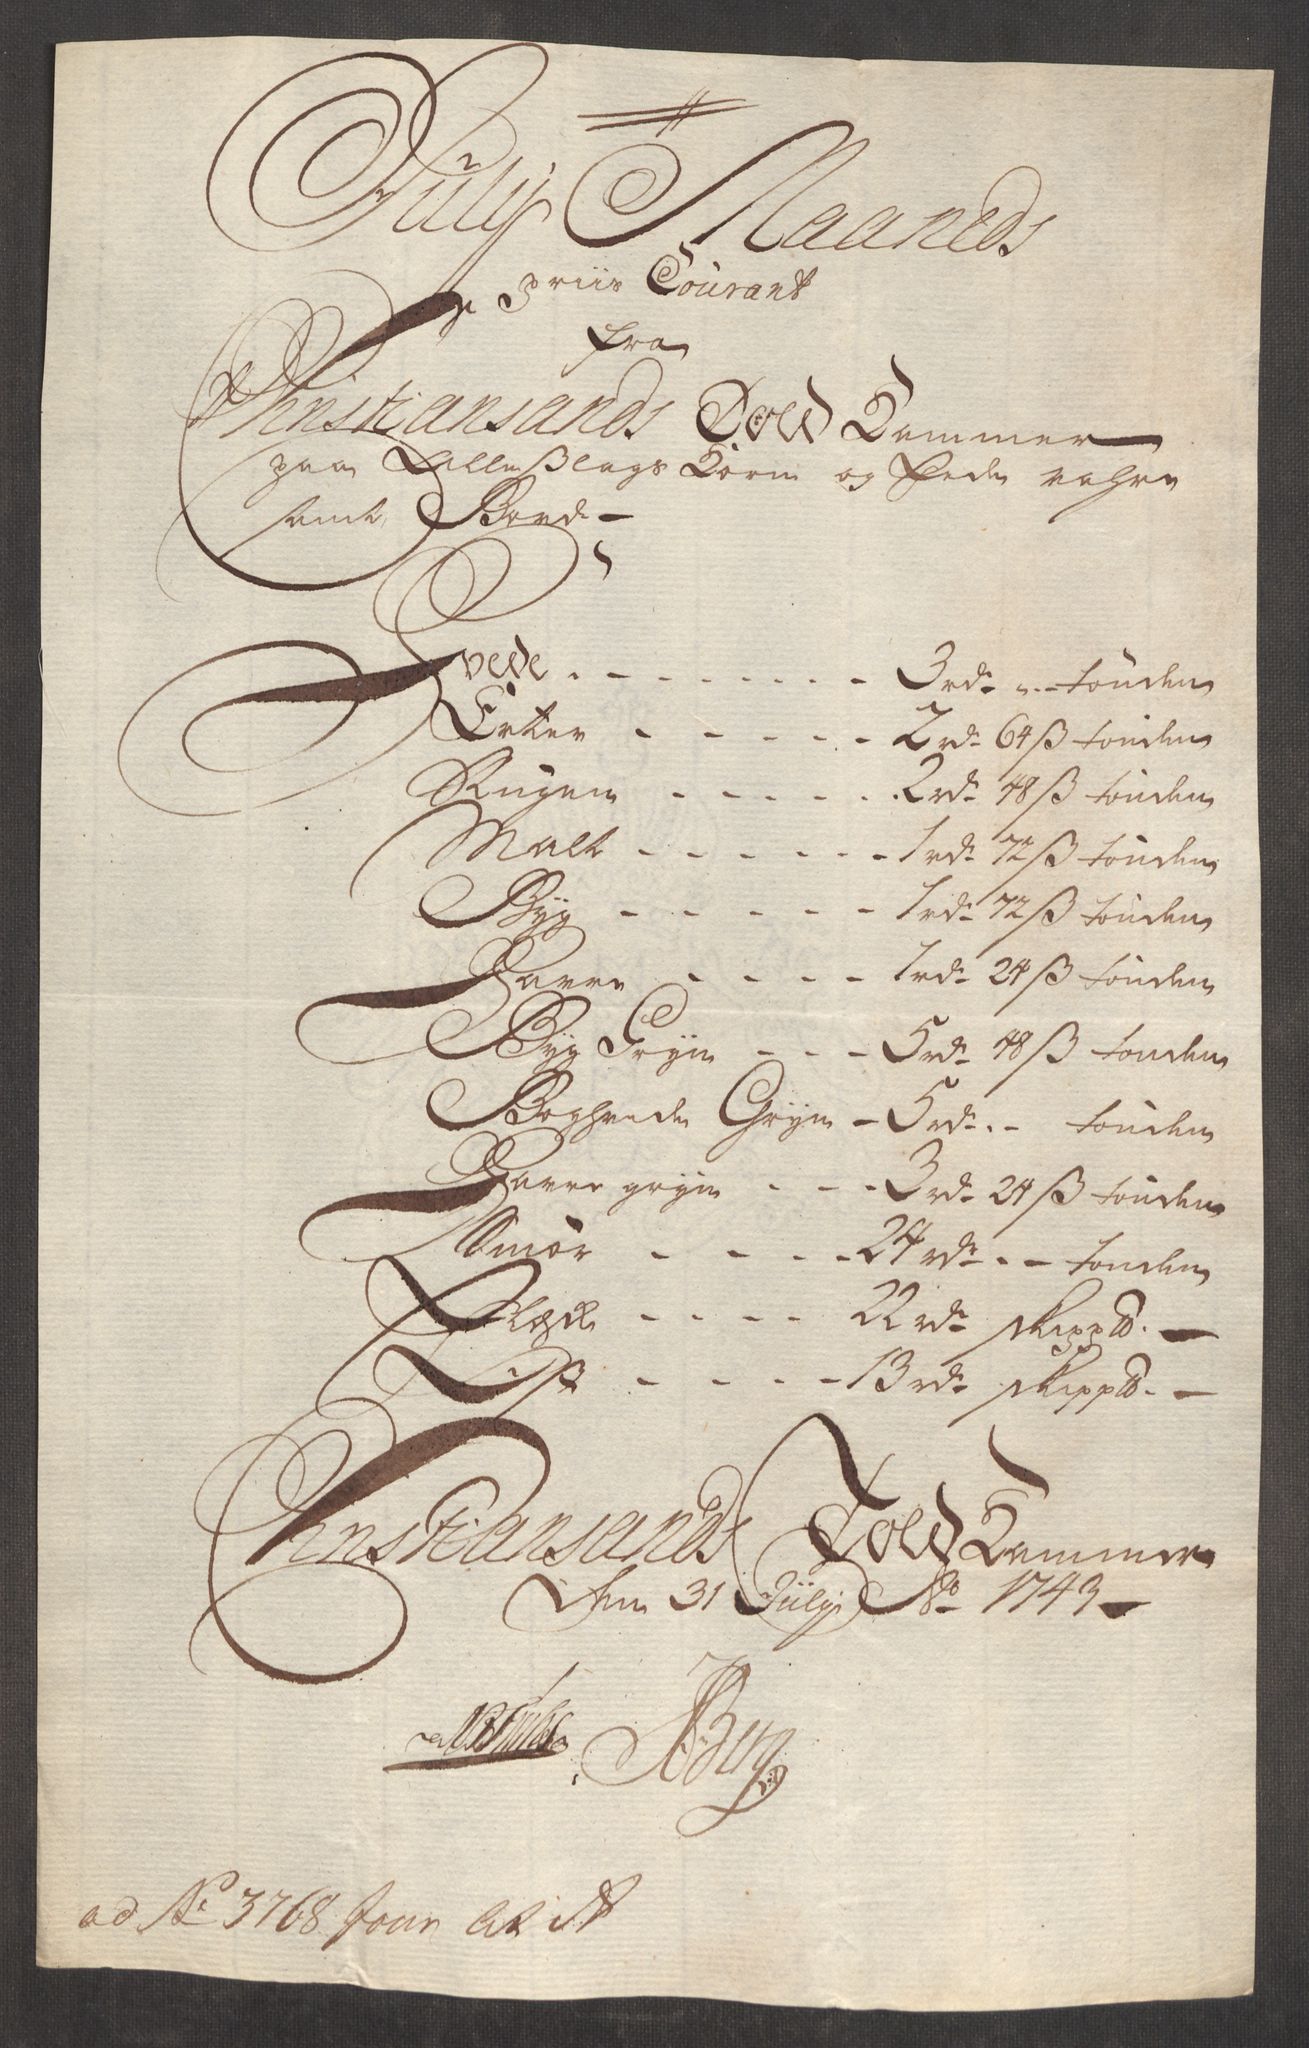 Julij Maaneds
priis Courant
fra
Christiansands Told Kammer
paa Alle Slags Korn og Fede vahre
samt Bord
Hvede - - - 3 rd - - tønden
Erter - - - 2 rd 64 ß tønden
Rugen - - - 2 rd 48 ß tønden
Malt - - - 1 rd 72 ß tønden
Byg - - - 1 rd 72 ß tønden
Havre - - - 1 rd 24 ß tønden
Byg Gryn - - - 5 rd 48 ß tønden
Boghvede Gryn - 5 rd - - tønden
Havre gryn - - - 3 rd 24 ß tønden
Smør - - - 24 rd - - tønden
Flesk - - - 22 rd skippd
Ost - - - 13 rd skippd
Christiansands Told Kammer
den 31 Julij Ao 1743
Berg
ad No 3768 Jour